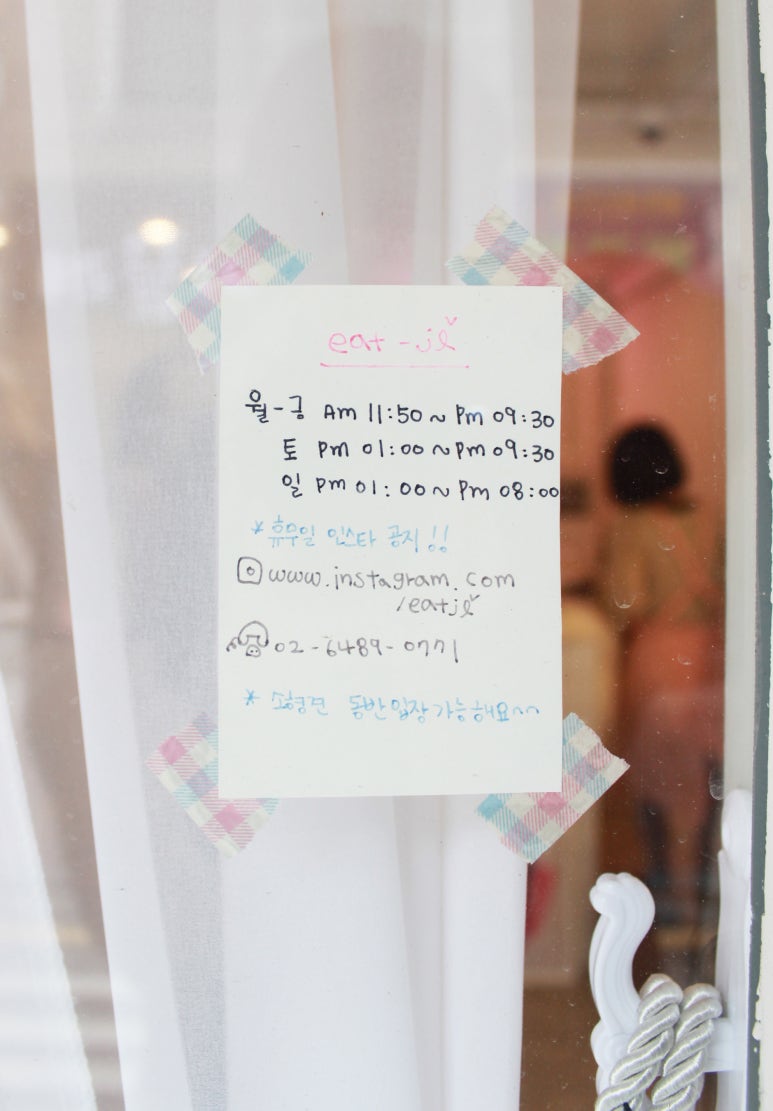 eat-jě
월-금 Am 11:50 ~ Pm 09:30
토 pm 01:00 ~ pm 09:30
일 pm 01:00 ~ Pm 08:00
* 휴무일 인스타 공지!!
www.instagram.com
/eatjě
02-6489-0771
* 소형견 동반입장가능해요~~